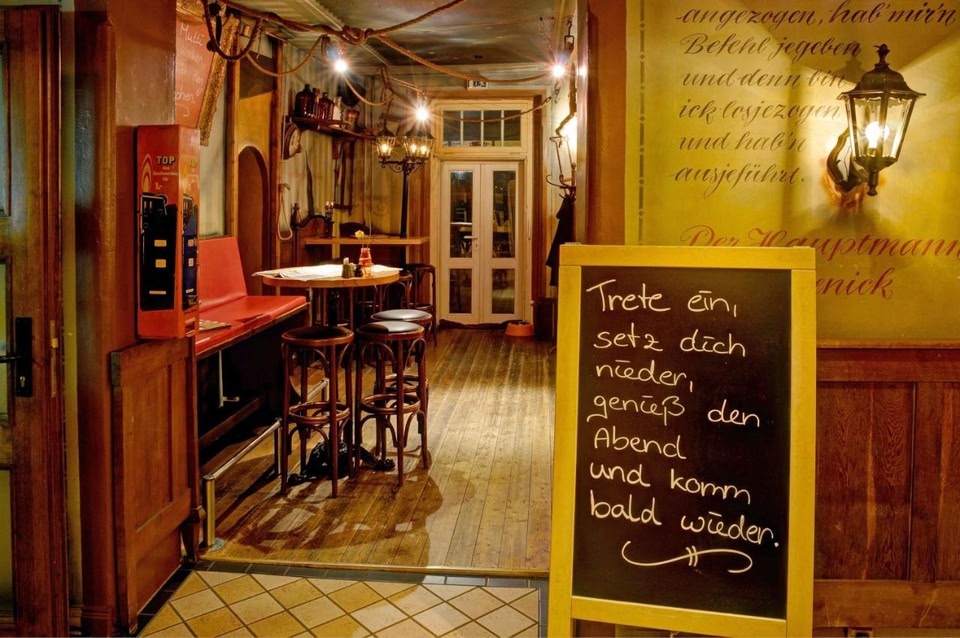 angezogen, hab'mir'n
Befehl jegeben
und denn bin
ick losjezogen
und hab'n
ausjeführt.
Der Hauptmann
enick
TOP
Trete ein,
setz dich
nieder,
genieß den
Abend
und komm
bald wieder.